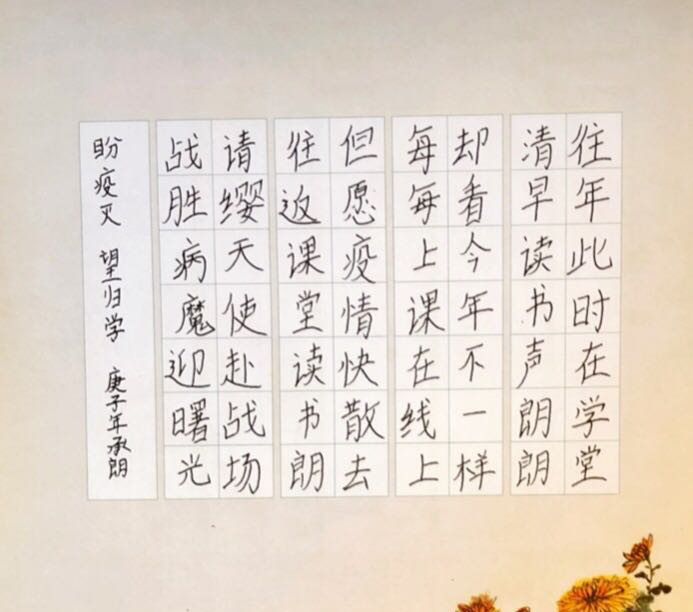 往年此时在学堂
清早读书声朗朗
却看今年不一样
每每上课在线上
但愿疫情快散去
往返课堂读书朗
请缨天使赴战场
战胜病魔迎曙光
盼疫灭 望归学 庚子年承朗